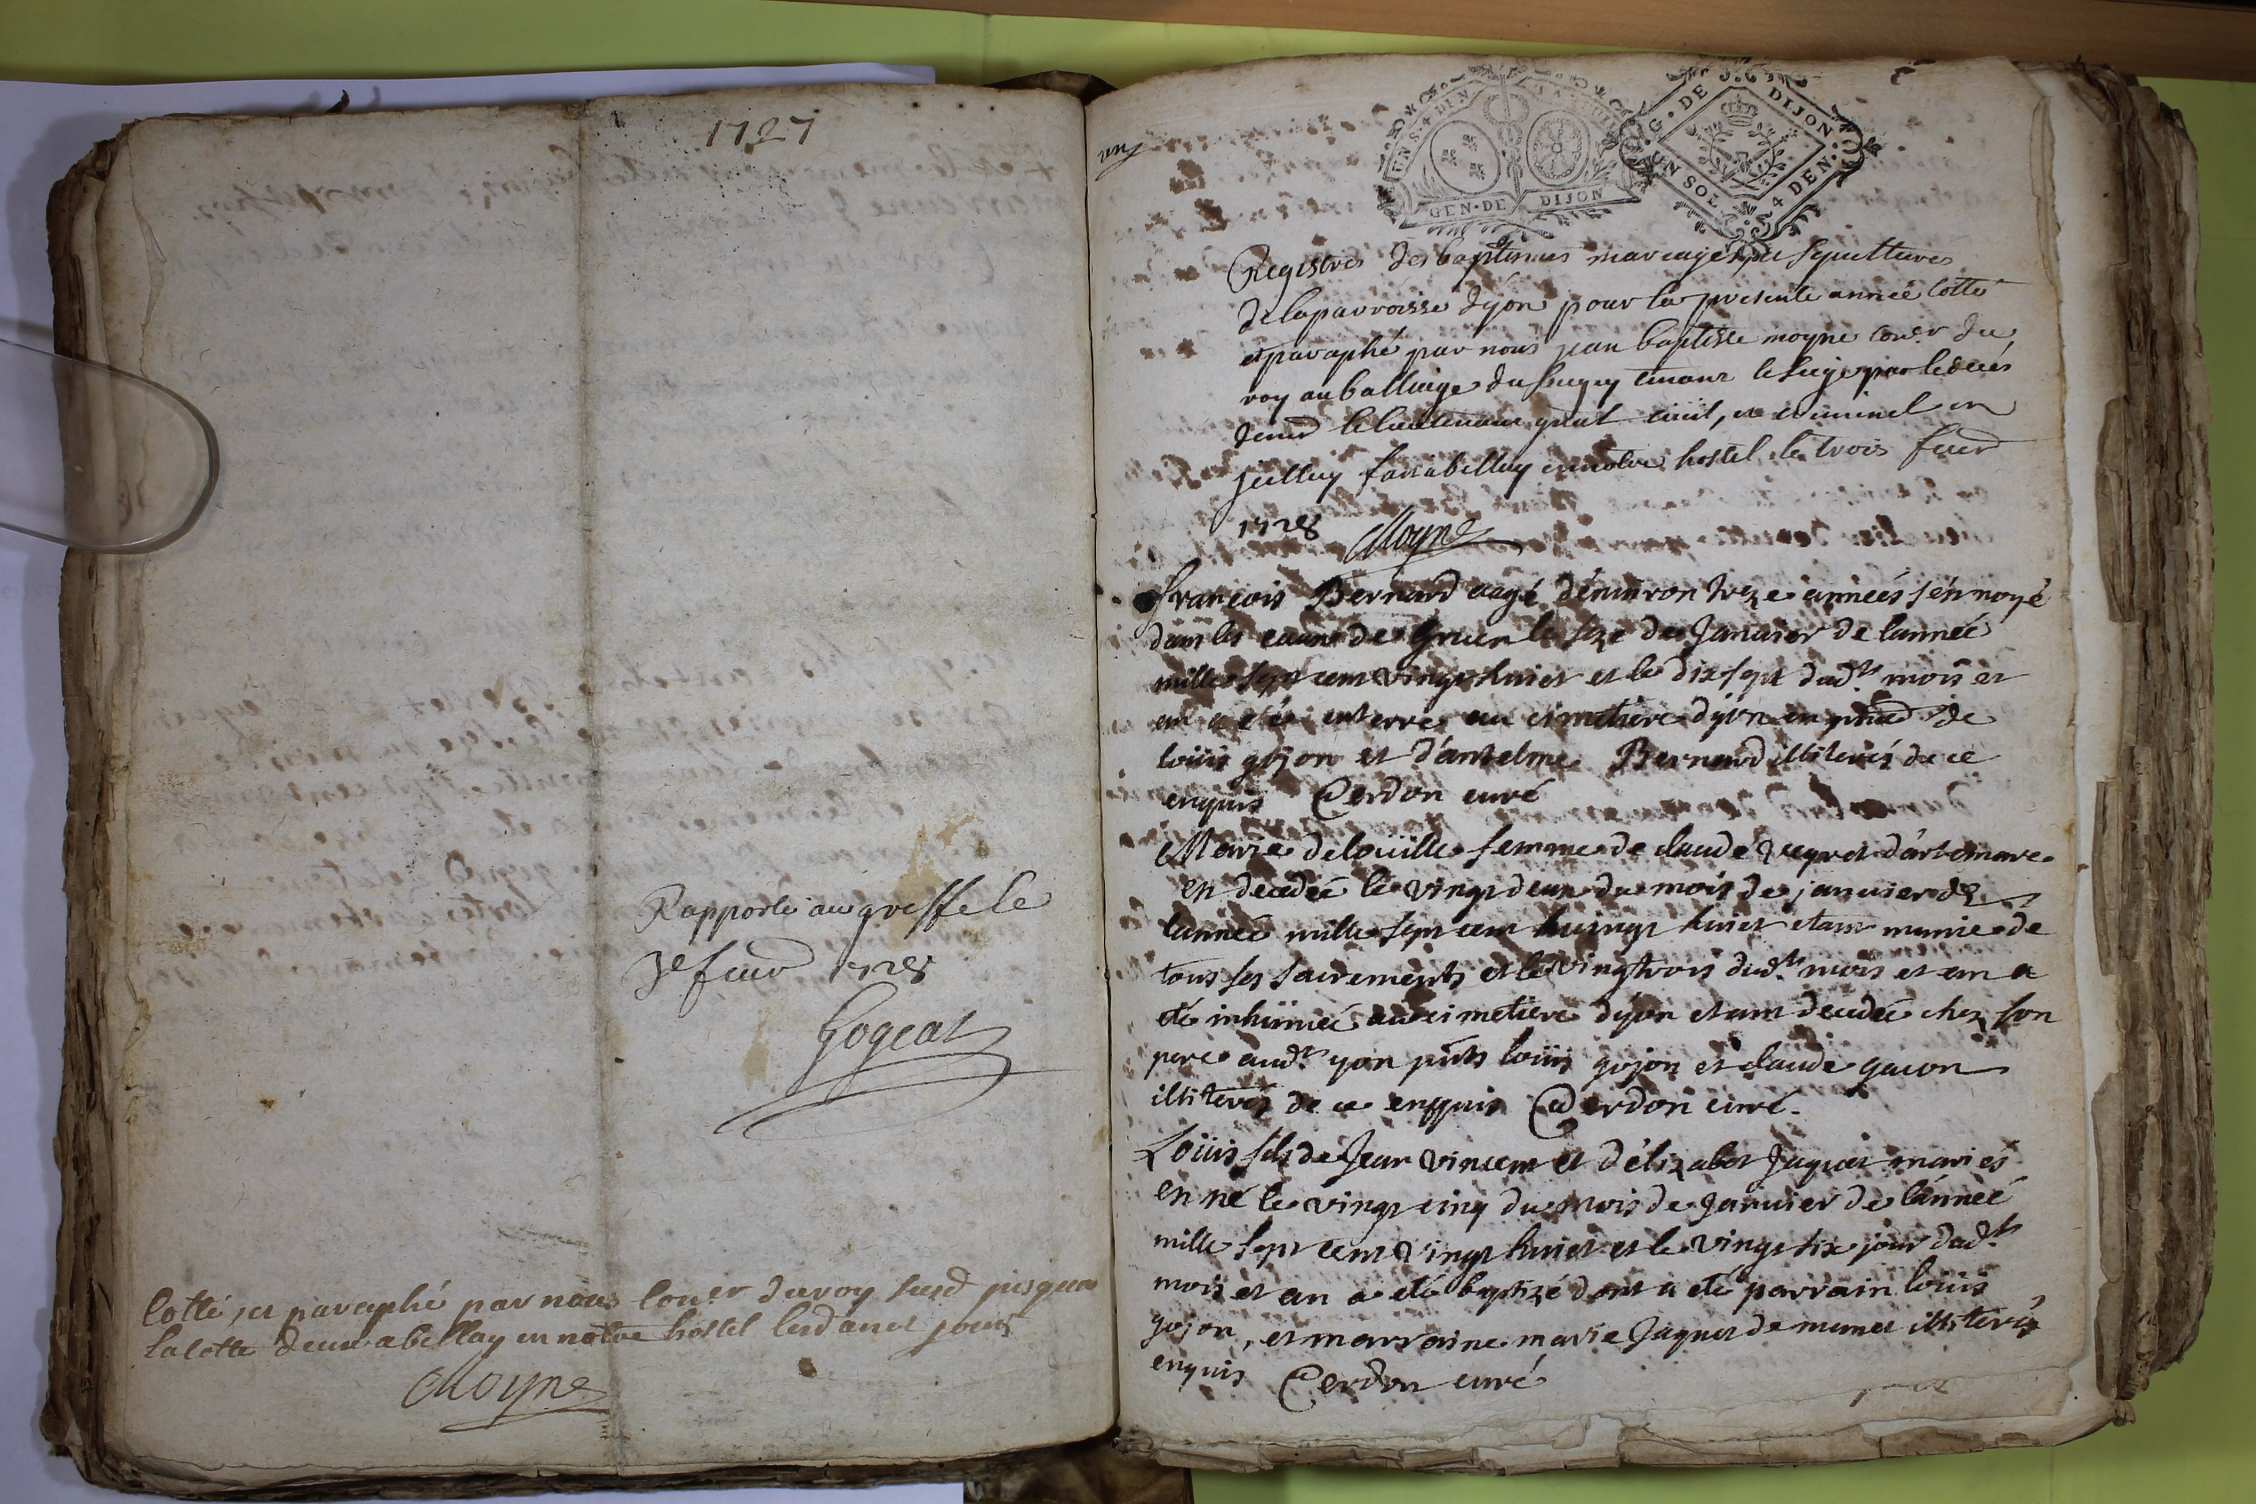 1727
Rapporté au greffe le
3e fevr 1728
Gogeat
Cotté, et paraphé par nous Coner du roy susd jusques
la cotte deux a bellay en notre hostel lesd an et jour
Moyne
un
UN S. 4 DEN
GEN. DE DIJON
G. DE DIJON
UN SOL 4 DEN.
Registres des baptemes mareages et sepultures
de la parroisse dyon pour la presente année cotté
et paraphé par nous jean baptiste moyne coner du
roy au balliage du bugey tenant le siege par le deces
de mr le lieutenant gnal civil, et criminel en
icelluy fait a bellay en notre hostel le trois fevr
1728 Moyne
François Bernard aagé d'environ treze années s'en noyé
dans les eaux de le seze de Janvier de l'année
mille sept cent vingt huict et le dix sept dudt mois et
an a eté enterré au cimetiere d'yon en pnce de
loüis gojon et d'antelme Bernard illiterés de ce
enquis Cerdon curé
Marie delouille femme de claude vegret d'artemare
en decedeé le vingt deux du mois de janvier de
l'anneé mille sept cent vingt huict etant munie de
tous ses sacrements et le vingt trois dudt mois et an a
eté inhümeé au cimetiere d'yon etant decedeé chez son
pere audt yon pnts loüis gojon et claude gacon
illiterés de ce enquis Cerdon curé.
Loüis fils de Jean Vincent et d'elizabet Jaquet mariés
en né le vingt cinq du mois de Janvier de l'anneé
mille sept cent vingt huict et le vingt six jour dudt
mois et an a eté baptizé dont a eté parrain loüis
gojon, et marraine marie Jaquet de memes illiterés
enquis Cerdon curé